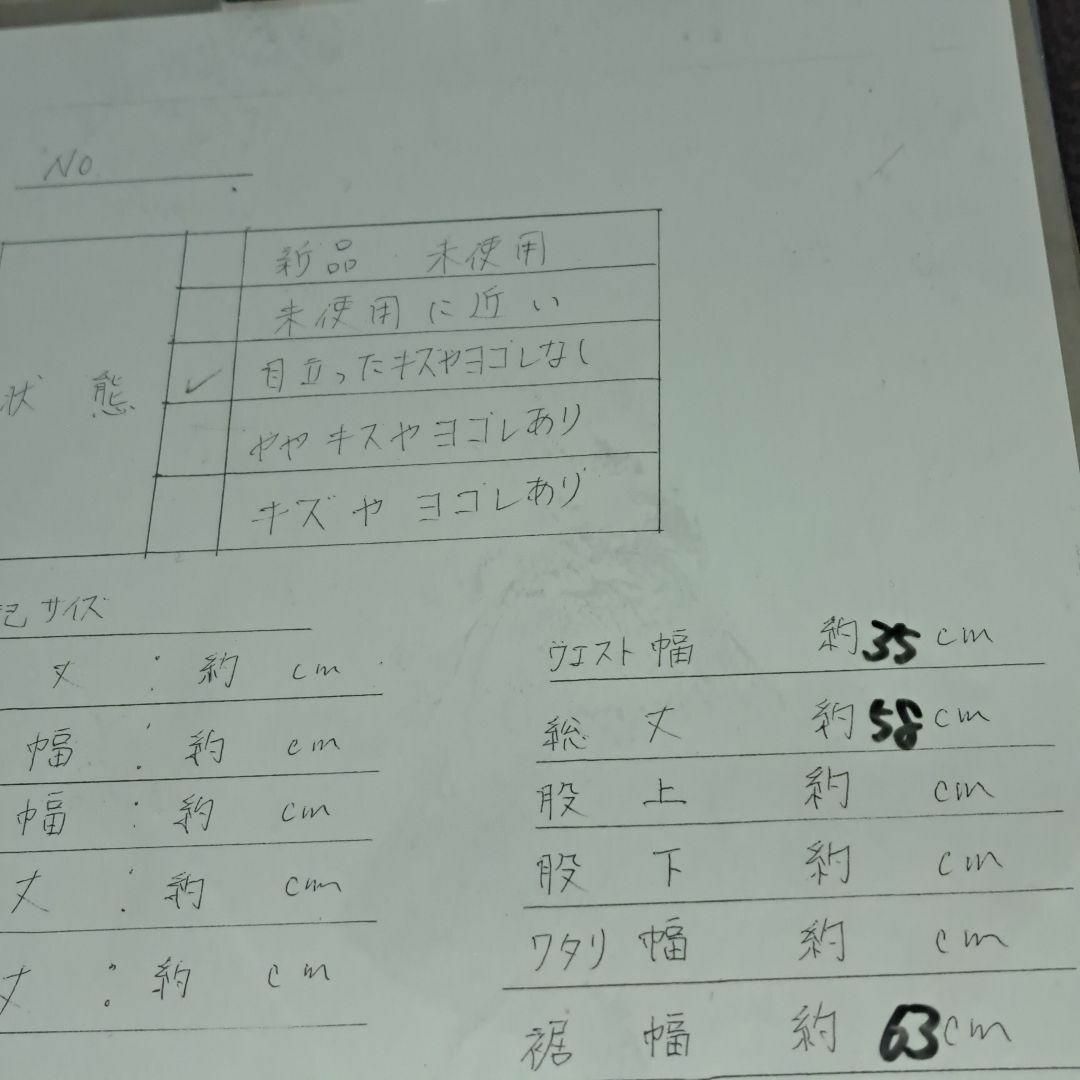 NO
状態
新品 未使用
未使用に近い
✓ 目立ったキズやヨゴレなし
ややキズやヨゴレあり
キズやヨゴレあり
記サイズ
丈 : 約 cm
幅 : 約 cm
幅 : 約 cm
丈 : 約 cm
丈 : 約 cm
ウエスト幅 約35cm
総丈 約58cm
股上 約 cm
股下 約 cm
ワタリ幅 約 cm
裾幅 約63cm